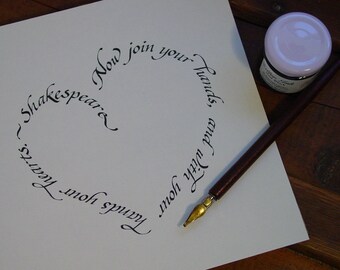 Now join your hands, and with your hands your hearts. ~ Shakespeare